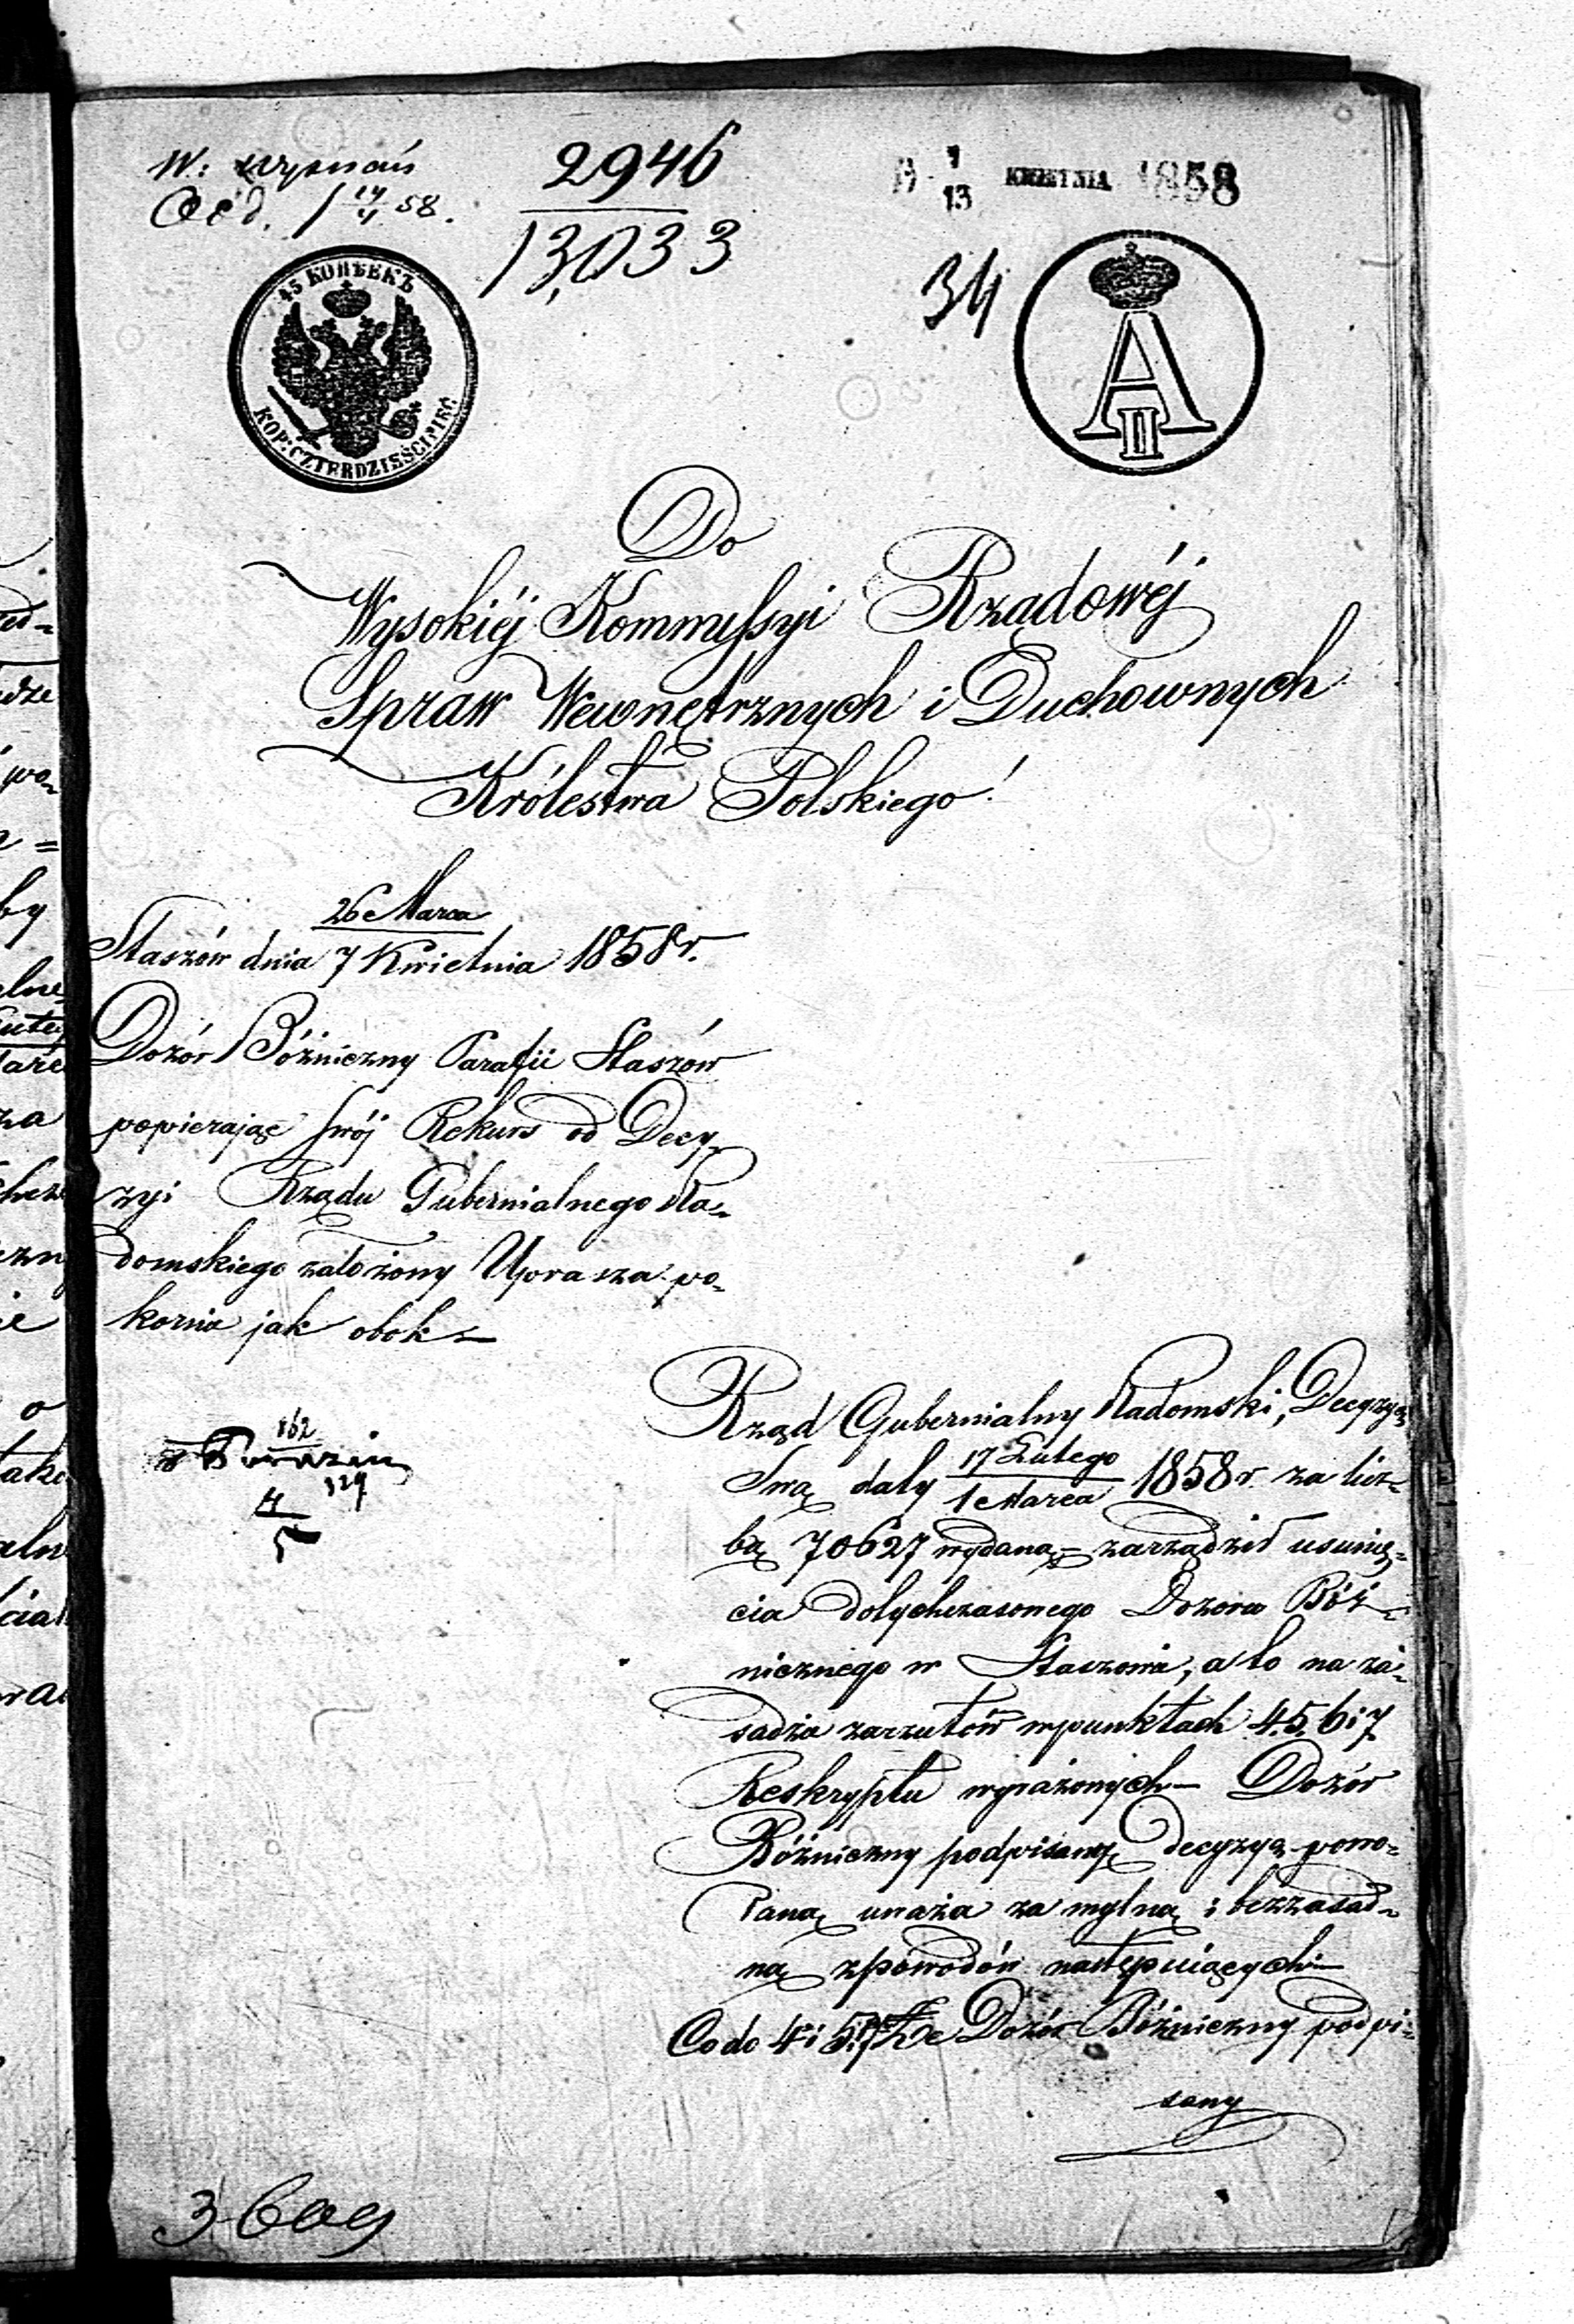 W: wyznań
2946
13,033
1/13 KWIETNIA 1858
34
45 КОПѢЕКЪ
KOP: CZTERDZIEŚCI PIĘĆ
A II
Do
Wysokiéj Kommyssyi Rządowéj
Spraw Wewnętrznych i Duchownych
Królestwa Polskiego!
26 Marca
Staszów dnia 7 Kwietnia 1858 r.
Dozór Bóżniczny Parafii Staszów
popierając swój Rekurs od Decy-
zyi Rządu Gubernialnego Ra-
domskiego założony Uprasza po-
kornie jak obok
Rząd Gubernialny Radomski, Decyzyą
Swą daty 17 Lutego
1 Marca 1858 r. za licz-
bą 70627 wydaną zarządził usunię-
cia dotychczasowego Dozoru Bóż-
nicznego w Staszowie, a to na za-
sadzie zarzutów w punktach 4. 5. 6 i 7
Reskryptu wyrażonych – Dozór
Bóżniczny podpisany decyzyą powo-
łaną uważa za mylną i bezzasad-
ną z powodów następuiących
Co do 4 i 5 Że Dozór Bóżniczny podpi-
sany
3609